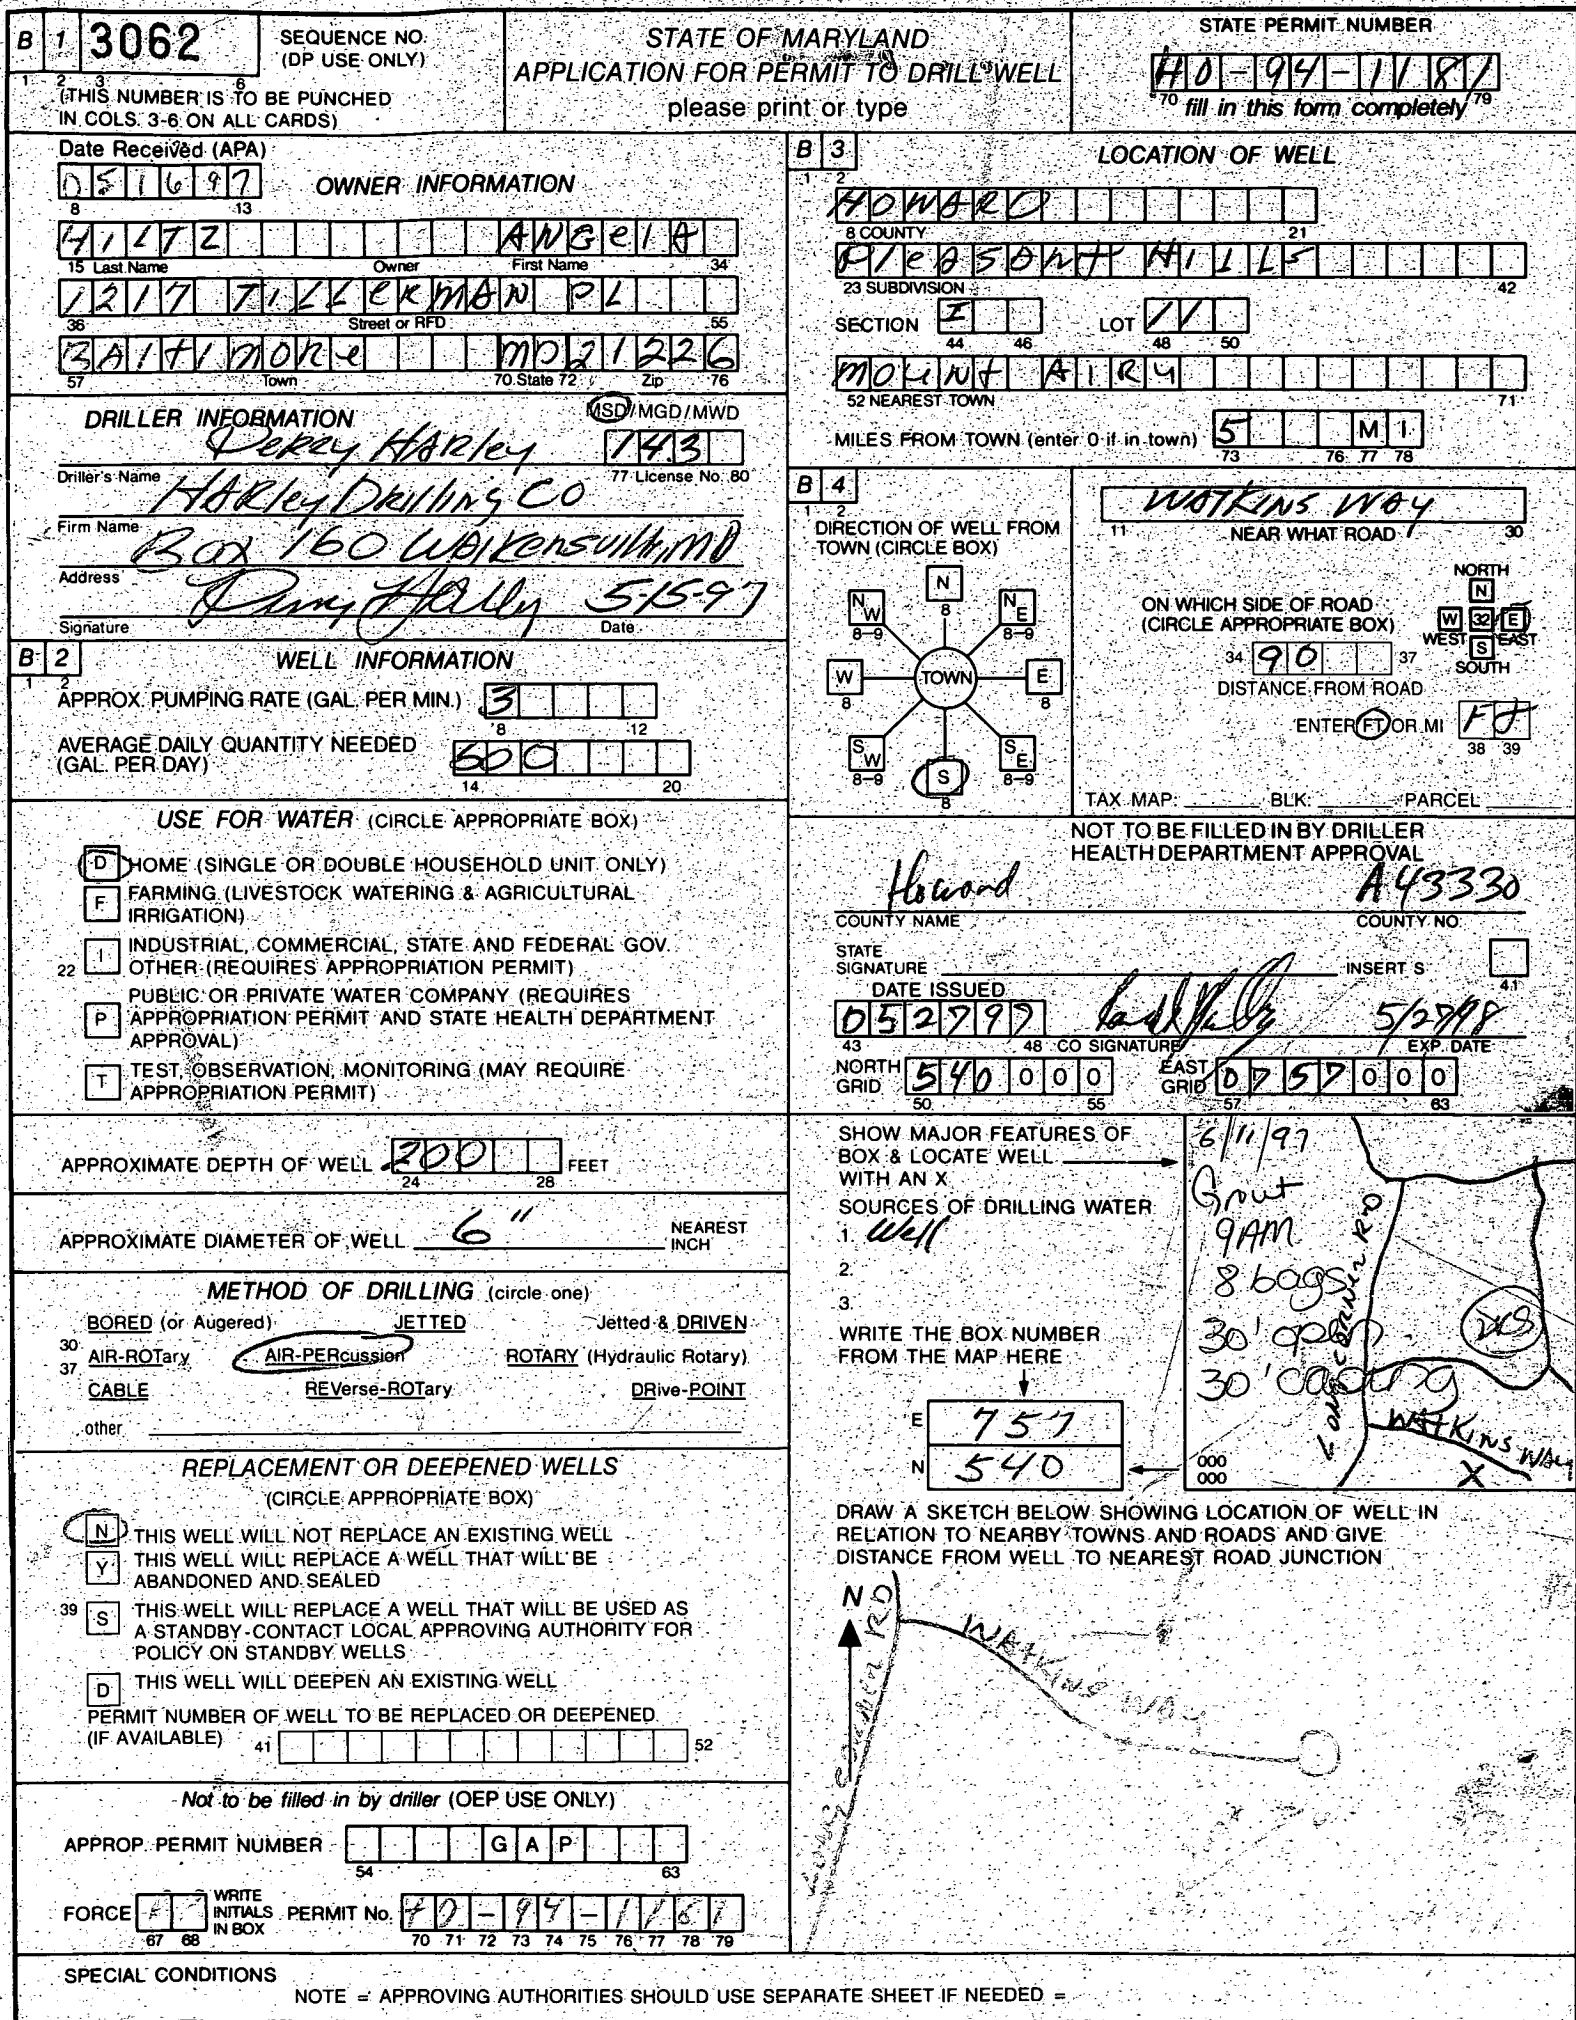 B 1 3062
SEQUENCE NO.
(DP USE ONLY)
1 2 3 6
(THIS NUMBER IS TO BE PUNCHED
IN COLS. 3-6 ON ALL CARDS)
STATE OF MARYLAND
APPLICATION FOR PERMIT TO DRILL WELL
please print or type
STATE PERMIT NUMBER
HO-94-1181
70 fill in this form completely 79
Date Received (APA)
051697
8 13
OWNER INFORMATION
HILTZ ANGelA
15 Last Name Owner First Name 34
1217 TILLeRMAN PL
36 Street or RFD 55
BAltimoRe MD 21226
57 Town 70 State 72 Zip 76
DRILLER INFORMATION
MSD/MGD/MWD
Perry HARley 143
Driller's Name 77 License No. 80
HARley Drilling CO
Firm Name
Box 160 WAlkensville, MD
Address
5-15-97
Signature Date
B 2
1 2
WELL INFORMATION
APPROX. PUMPING RATE (GAL. PER MIN.) 3
8 12
AVERAGE DAILY QUANTITY NEEDED
(GAL. PER DAY) 500
14 20
USE FOR WATER (CIRCLE APPROPRIATE BOX)
D HOME (SINGLE OR DOUBLE HOUSEHOLD UNIT ONLY)
F FARMING (LIVESTOCK WATERING & AGRICULTURAL
IRRIGATION)
22 I INDUSTRIAL, COMMERCIAL, STATE AND FEDERAL GOV.
OTHER (REQUIRES APPROPRIATION PERMIT)
P PUBLIC OR PRIVATE WATER COMPANY (REQUIRES
APPROPRIATION PERMIT AND STATE HEALTH DEPARTMENT
APPROVAL)
T TEST, OBSERVATION, MONITORING (MAY REQUIRE
APPROPRIATION PERMIT)
APPROXIMATE DEPTH OF WELL 200 FEET
24 28
APPROXIMATE DIAMETER OF WELL 6" NEAREST
INCH
METHOD OF DRILLING (circle one)
BORED (or Augered) JETTED Jetted & DRIVEN
30 37 AIR-ROTary AIR-PERcussion ROTARY (Hydraulic Rotary)
CABLE REVerse-ROTary DRive-POINT
other
REPLACEMENT OR DEEPENED WELLS
(CIRCLE APPROPRIATE BOX)
N THIS WELL WILL NOT REPLACE AN EXISTING WELL
Y THIS WELL WILL REPLACE A WELL THAT WILL BE
ABANDONED AND SEALED
39 S THIS WELL WILL REPLACE A WELL THAT WILL BE USED AS
A STANDBY-CONTACT LOCAL APPROVING AUTHORITY FOR
POLICY ON STANDBY WELLS
D THIS WELL WILL DEEPEN AN EXISTING WELL
PERMIT NUMBER OF WELL TO BE REPLACED OR DEEPENED
(IF AVAILABLE) 41 52
Not to be filled in by driller (OEP USE ONLY)
APPROP. PERMIT NUMBER GAP
54 63
FORCE WRITE
INITIALS
IN BOX
67 68
PERMIT No. HO-94-1181
70 71 72 73 74 75 76 77 78 79
SPECIAL CONDITIONS
NOTE = APPROVING AUTHORITIES SHOULD USE SEPARATE SHEET IF NEEDED =
B 3
1 2
LOCATION OF WELL
HOWARD
8 COUNTY 21
PleASANt HILLS
23 SUBDIVISION 42
SECTION I LOT 11
44 46 48 50
MOUNt AIRY
52 NEAREST TOWN 71
MILES FROM TOWN (enter 0 if in town) 5 MI
73 76 77 78
B 4
1 2
DIRECTION OF WELL FROM
TOWN (CIRCLE BOX)
N
8
NW NE
8-9 8-9
W TOWN E
8 8
SW SE
8-9 8-9
S
8
WATKINS WAY
11 NEAR WHAT ROAD 30
ON WHICH SIDE OF ROAD
(CIRCLE APPROPRIATE BOX)
NORTH
N
W 32 E
WEST EAST
S
SOUTH
34 90 37
DISTANCE FROM ROAD
ENTER FT OR MI Ft
38 39
TAX MAP: BLK: PARCEL
NOT TO BE FILLED IN BY DRILLER
HEALTH DEPARTMENT APPROVAL
Howard A43330
COUNTY NAME COUNTY NO.
STATE
SIGNATURE INSERT S
41
DATE ISSUED
052797 5/27/98
43 48 CO SIGNATURE EXP. DATE
NORTH
GRID 540 000
50 55
EAST
GRID 0757 000
57 63
SHOW MAJOR FEATURES OF
BOX & LOCATE WELL
WITH AN X
SOURCES OF DRILLING WATER
1. Well
2.
3.
WRITE THE BOX NUMBER
FROM THE MAP HERE
E 757
N 540
000
000
6/11/97
Grout
9AM
8 bags
30' open
30' casing
LONG CORNER RD
WATKINS WAY
X
DRAW A SKETCH BELOW SHOWING LOCATION OF WELL IN
RELATION TO NEARBY TOWNS AND ROADS AND GIVE
DISTANCE FROM WELL TO NEAREST ROAD JUNCTION
N
LONG CORNER RD
WATKINS WAY